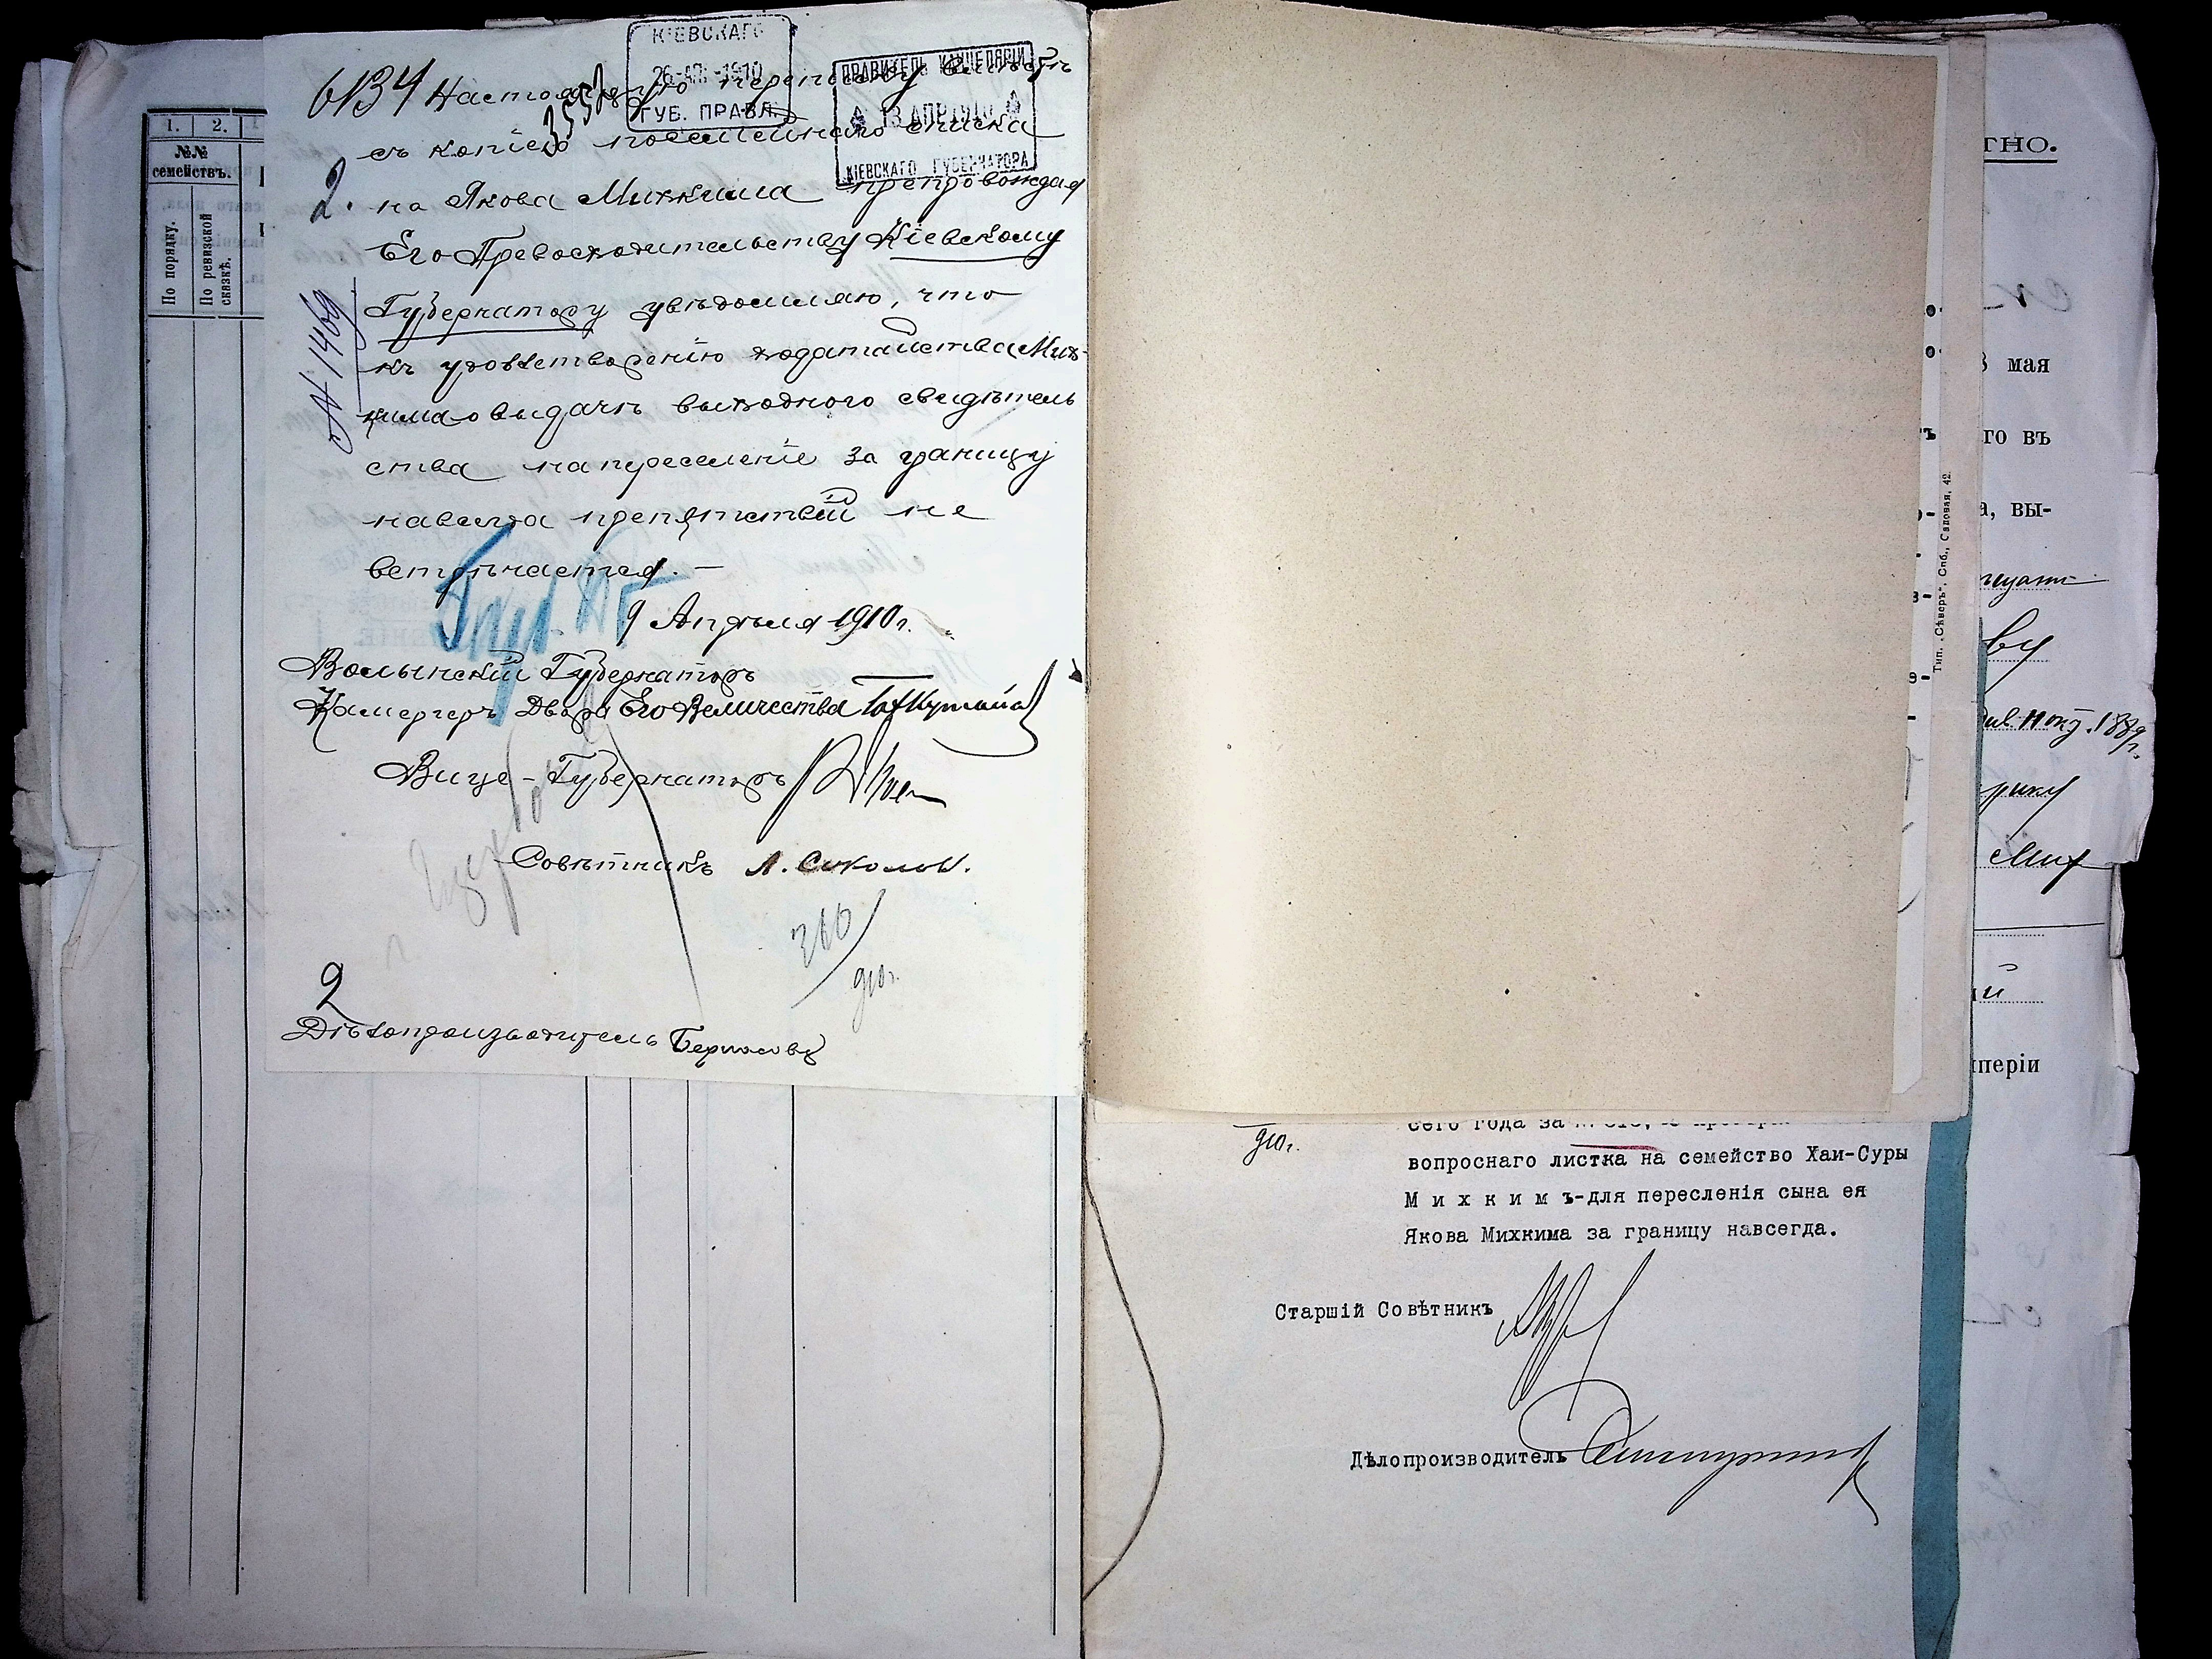 КІЕВСКАГО
26 АПР 1910
ГУБ. ПРАВЛ.
ПРАВИТЕЛЬ КАНЦЕЛЯРІИ
13 АПР 1910
КІЕВСКАГО ГУБЕРНАТОРА
6134 Настоящую переписку вместѣ
съ копіею посемейнаго списка
2. на Якова Михкима препровождая
Его Превосходительству Кіевскому
Губернатору увѣдомляю, что
къ удовлетворенію ходатайства Мих-
кима о выдачѣ выходного свидѣтель
ства на переселеніе за границу
навсегда препятствій не
встрѣчается. —
9 Апрѣля 1910 г.
№ 1469
Волынскій Губернаторъ
Камергеръ Двора Его Величества
Вице-Губернаторъ
Совѣтникъ Л. Соколов.
910 г.
2
Дѣлопроизводитель
1. 2.
№№
семействъ.
По порядку.
По ревизской
сказкѣ.
910 г.
сего года за
вопроснаго листка на семейство Хаи-Суры
М и х к и м ъ-для пересленія сына ея
Якова Михкима за границу навсегда.
Старшій Совѣтникъ
Дѣлопроизводитель
Тип. „Сѣверъ", Спб., Садовая, 42.
ТНО.
мая
го въ
а, вы-
ву
1889 г.
рику
Мих
й
періи